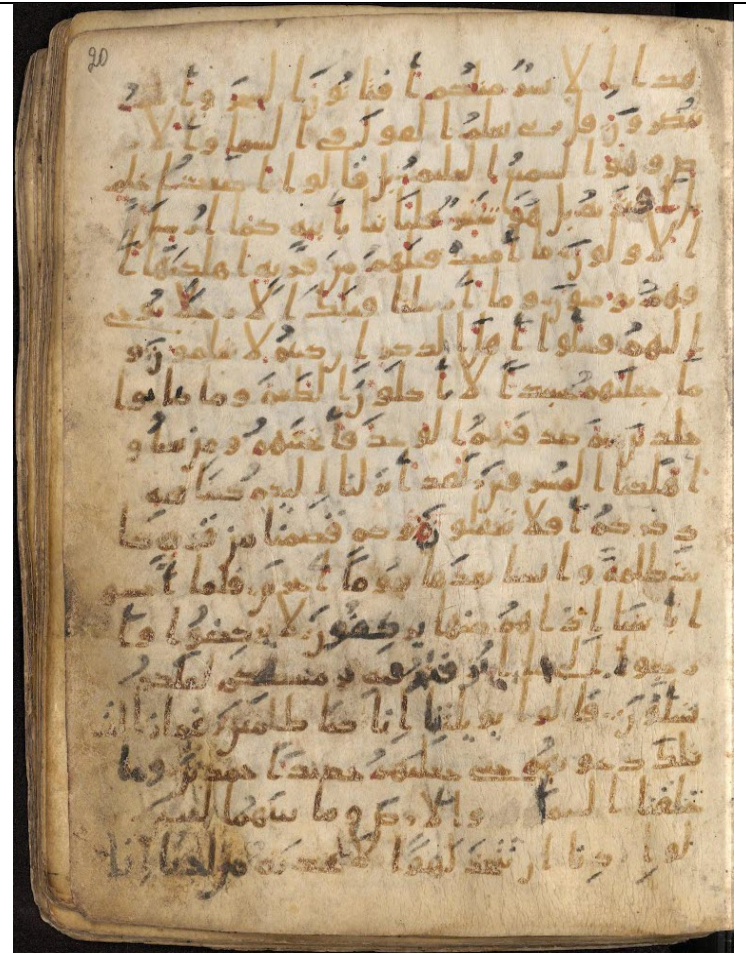 20
هذا الا بشر مثلكم افتاتون السحر وانتم
تبصرون قل ربي يعلم القول في السما والا
رض وهو السميع العليم بل قالوا اضغث احلم
بل افتريه بل هو شعر فلياتنا باية كما ارسل
الاولون ما امنت قبلهم من قرية اهلكنها ا
فهم يومنون وما ارسلنا قبلك الا رجلا نوحي
اليهم فسلوا اهل الذكر ان كنتم لا تعلمون و
ما جعلنهم جسدا لا ياكلون الطعم وما كانوا
خلدين ثم صدقنهم الوعد فانجينهم ومن نشا و
اهلكنا المسرفين لقد انزلنا اليكم كتبا فيه
ذكركم افلا تعقلون وكم قصمنا من قرية كا
نت ظلمة وانشانا بعدها قوما اخرين فلما احسو
ا باسنا اذا هم منها يركضون لا تركضوا وا
رجعوا الى ما اترفتم فيه ومسكنكم لعلكم
تسلون قالوا يويلنا انا كنا ظلمين فما زالت
تلك دعويهم حتى جعلنهم حصيدا خمدين وما
خلقنا السما والارض وما بينهما لعبين
لو اردنا ان نتخذ لهوا لاتخذنه من لدنا ان